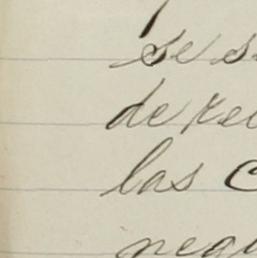 se s
de rec
las C
nega